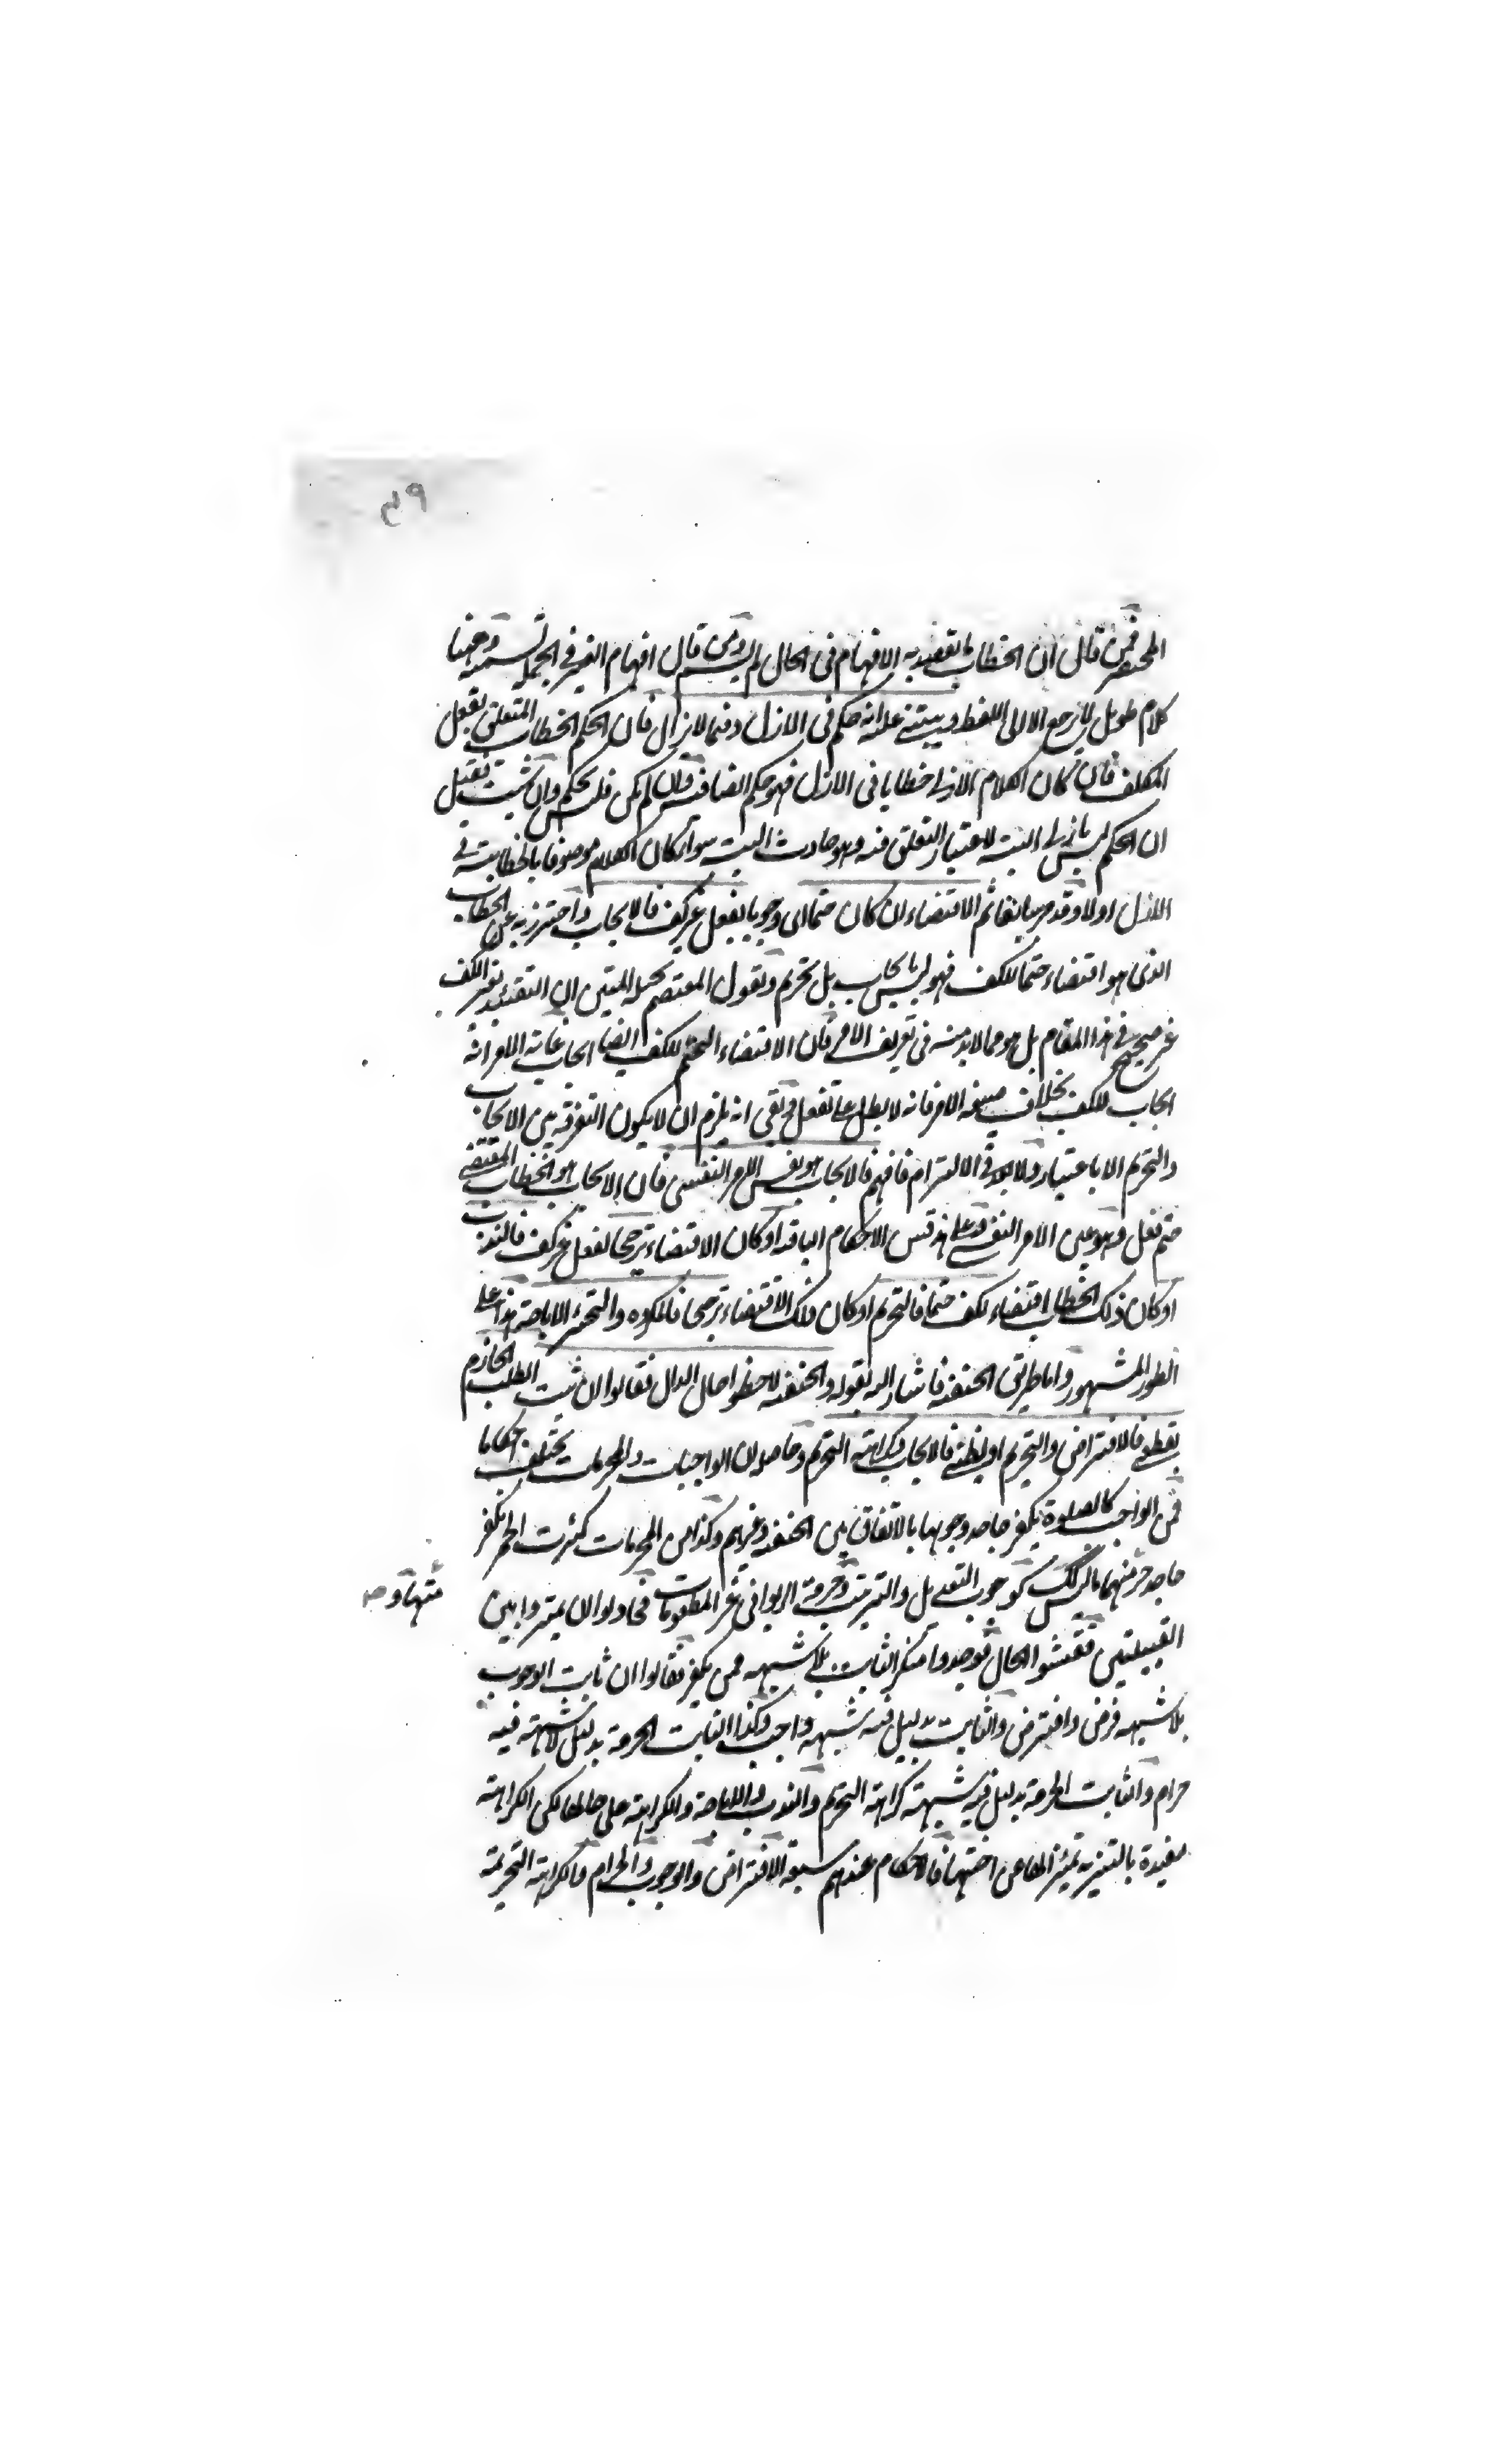 ٤٩
المختصر فمن قال ان الخطاب ما يقصد به الافهام فى الحال لم يسم ومن قال افهام الغير فى الجملة تسميه وههنا
كلام طويل لا يرجع الا الى اللفظ ويبتنى عليه انه حكم فى الازل وفيما لا يزال فان الحكم الخطاب المتعلق بفعل
المكلف فان كان الكلام الازلى خطابا فى الازل فهو حكم ايضا فيه وان لم يكن فليس بحكم وان شئت تقبل
ان الحكم ليس بازلى البتة لاعتبار التعلق فيه وهو حادث البتة سواء كان الكلام موصوفا بالخطابية فى
الازل او لا وقد مر سابقا ثم الاقتضاء ان كان حتما اى وجوبا بفعل غير كف فالايجاب واحترز به عن الخطاب
الذى هو اقتضاء حتما للكف فهو ليس بايجاب بل تحريم ويقول المعتصم بحبله المتين ان التقييد بغير الكف
غير صحيح فى هذا المقام بل هو مما لابد منه فى تعريف الامر فان الاقتضاء التحتم للكف ايضا ايجاب غاية الامر انه
ايجاب للكف بخلاف صيغة الامر فانه لا يطلق على تفعل بقى انه يلزم ان لا يكون التفرقة بين الايجاب
والتحريم الا باعتبار ولا بعد فى الالتزام فافهم فالايجاب هو نفس الامر النفسى فان الايجاب هو الخطاب المقتضى
حتم لفعل وهو عين الامر النفسى وعلى هذا قس الاحكام الباقية او كان الاقتضاء ترجيحا لفعل غير كف فالندب
او كان ذلك الخطاب اقتضاء لكف حتما فالتحريم او كان ذلك الاقتضاء ترجيحا فالمكروه والتخيير الاباحة هذا على
الطور المشهور واما طريق الحنفية فاشار اليه بقوله والحنفية لاحظوا حال الدال فقالوا ان ثبت الطلب الجازم
بقطعى فالافتراض والتحريم او بظنى فالايجاب وكراهة التحريم وحاصله ان الواجبات والمحرمات يختلف احكامها
فمن الواجب كالصلوة يكفر جاحد وجوبها بالاتفاق بين الحنفية وغيرهم وكذا من المحرمات كشرب الخمر يكفر
جاحد حرمتها ما ليس كذلك كوجوب التعديل والترتيب وحرمة الربوا فى غير المطعومات فحاولوا ان يميزوا بين
منهما و
القبيلتين ففتشوا الحال فوجدوا منكر الثابت بلا شبهة ممن يكفر فقالوا ان ثابت الوجوب
بلا شبهه فرض وافترض والثابت بدليل فيه شبهه واجب وكذا الثابت الحرمة بدليل لا شبهة فيه
حرام والثابت الحرمة بدليل فيه شبهة كراهة التحريم والندب والاباحة والكراهة على حالها لكن الكراهة
مقيدة بالتنزيه تمييزا لها عن اختها فالاحكام عندهم سبعة الافتراض والوجوب والحرام والكراهة التحريمة